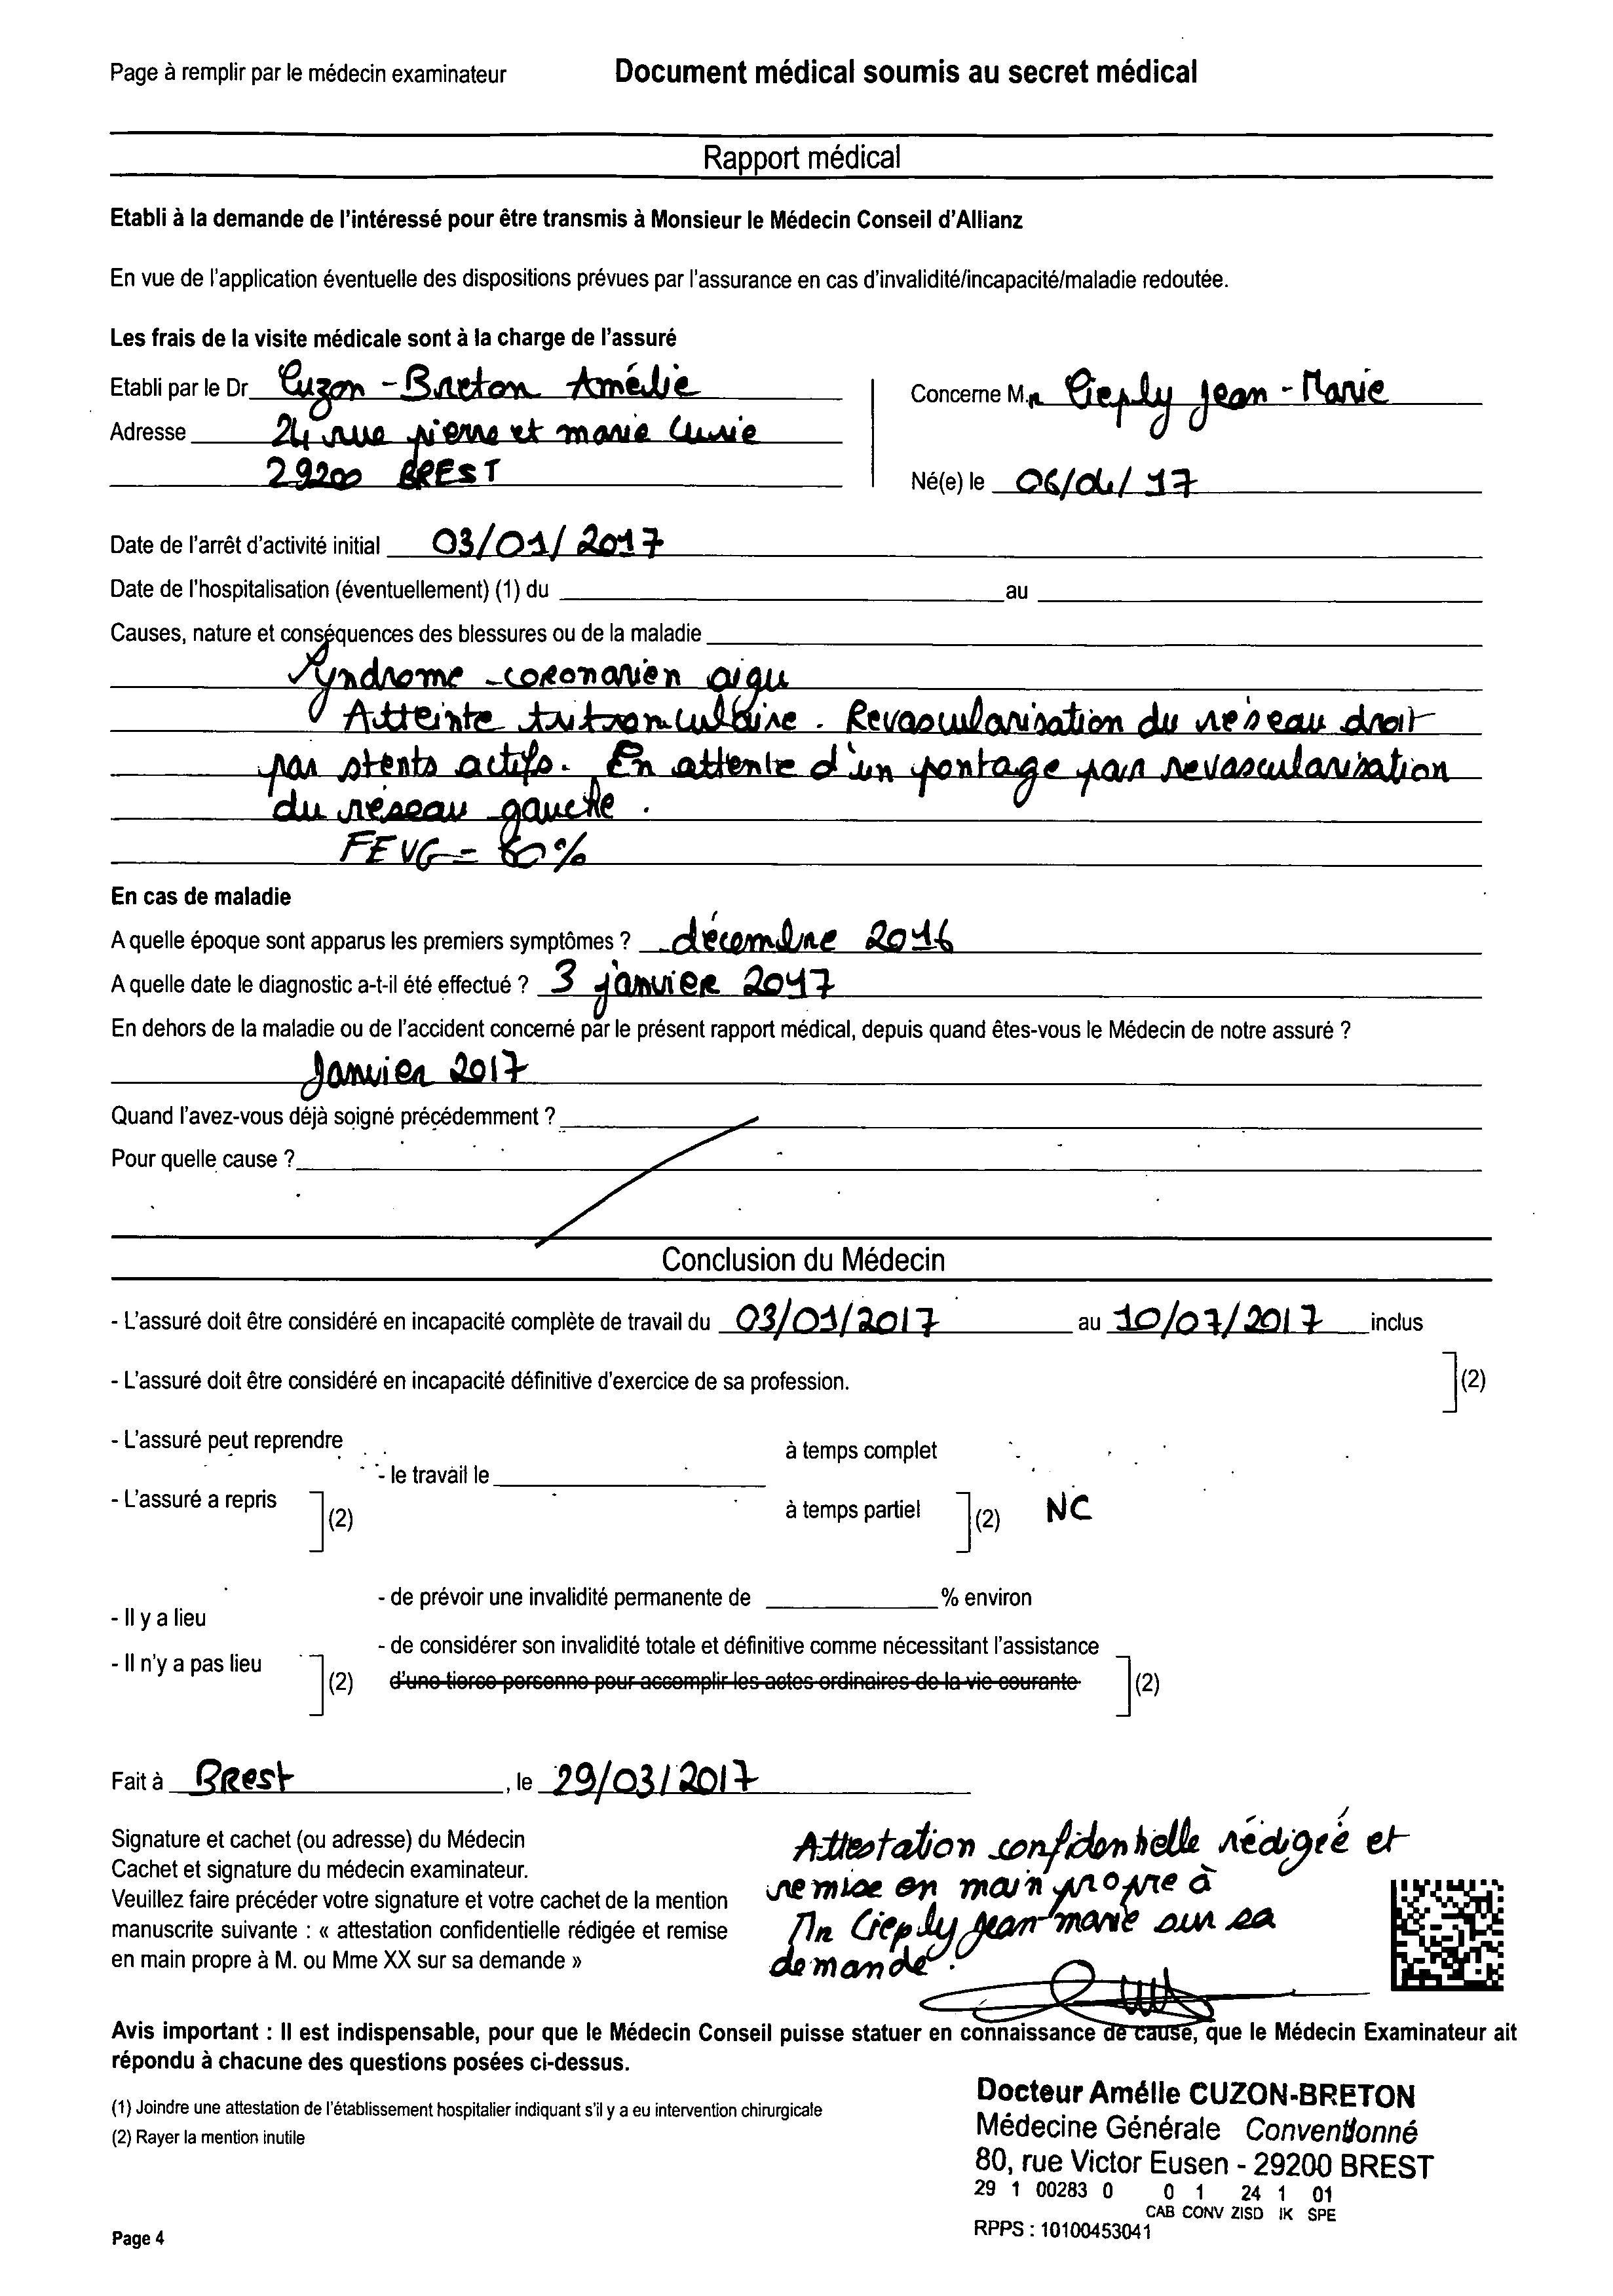 Page à remplir par le médecin examinateur Document médical soumis au secret médical
Rapport médical
Etabli à la demande de l'intéressé pour être transmis à Monsieur le Médecin Conseil d'Allianz
En vue de l'application éventuelle des dispositions prévues par l'assurance en cas d'invalidité/incapacité/maladie redoutée.
Les frais de la visite médicale sont à la charge de l'assuré
Etabli par le Dr Cuzon-Breton Amélie
Adresse 24 rue pierre et marie Curie
29200 BREST
Concerne M.r Cieply Jean-Marie
Né(e) le 06/04/17
Date de l'arrêt d'activité initial 03/01/2017
Date de l'hospitalisation (éventuellement) (1) du au
Causes, nature et conséquences des blessures ou de la maladie
Syndrome coronarien aigu
Atteinte tritronculaire. Revascularisation du réseau droit
par stents actifs. En attente d'un pontage par revascularisation
du réseau gauche.
FEVG = %
En cas de maladie
A quelle époque sont apparus les premiers symptômes ? décembre 2016
A quelle date le diagnostic a-t-il été effectué ? 3 janvier 2017
En dehors de la maladie ou de l'accident concerné par le présent rapport médical, depuis quand êtes-vous le Médecin de notre assuré ?
Janvier 2017
Quand l'avez-vous déjà soigné précédemment ?
Pour quelle cause ?
Conclusion du Médecin
- L'assuré doit être considéré en incapacité complète de travail du 03/01/2017 au 10/07/2017 inclus
- L'assuré doit être considéré en incapacité définitive d'exercice de sa profession. (2)
- L'assuré peut reprendre
à temps complet
- le travail le
- L'assuré a repris (2)
à temps partiel (2) NC
- de prévoir une invalidité permanente de % environ
- Il y a lieu
- de considérer son invalidité totale et définitive comme nécessitant l'assistance
- Il n'y a pas lieu (2)
d'une tierce personne pour accomplir les actes ordinaires de la vie courante (2)
Fait à Brest, le 29/03/2017
Signature et cachet (ou adresse) du Médecin
Cachet et signature du médecin examinateur.
Veuillez faire précéder votre signature et votre cachet de la mention
manuscrite suivante : « attestation confidentielle rédigée et remise
en main propre à M. ou Mme XX sur sa demande »
Attestation confidentielle rédigée et
remise en main propre à
Mr Cieply Jean-marie sur sa
demande.
Avis important : Il est indispensable, pour que le Médecin Conseil puisse statuer en connaissance de cause, que le Médecin Examinateur ait
répondu à chacune des questions posées ci-dessus.
(1) Joindre une attestation de l'établissement hospitalier indiquant s'il y a eu intervention chirurgicale
(2) Rayer la mention inutile
Docteur Amélie CUZON-BRETON
Médecine Générale Conventionné
80, rue Victor Eusen - 29200 BREST
29 1 00283 0 0 1 24 1 01
CAB CONV ZISD IK SPE
RPPS : 10100453041
Page 4